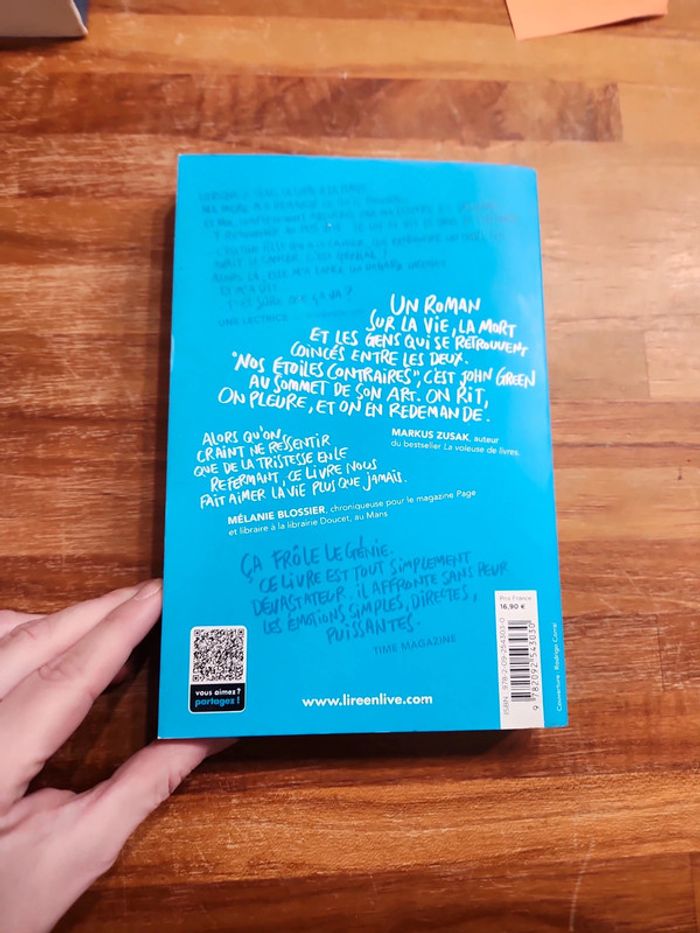 ET M'A DIT
ÇA VA ?
UNE LECTRICE
UN ROMAN
SUR LA VIE, LA MORT
ET LES GENS QUI SE RETROUVENT
COINCÉS ENTRE LES DEUX.
"NOS ÉTOILES CONTRAIRES", C'EST JOHN GREEN
AU SOMMET DE SON ART. ON RIT,
ON PLEURE, ET ON EN REDEMANDE.
MARKUS ZUSAK, auteur
du bestseller La voleuse de livres.
ALORS QU'ON
CRAINT NE RESSENTIR
QUE DE LA TRISTESSE EN LE
REFERMANT, CE LIVRE NOUS
FAIT AIMER LA VIE PLUS QUE JAMAIS.
MÉLANIE BLOSSIER, chroniqueuse pour le magazine Page
et libraire à la librairie Doucet, au Mans
ÇA FRÔLE LE GÉNIE.
CE LIVRE EST TOUT SIMPLEMENT
DÉVASTATEUR. IL AFFRONTE SANS PEUR
LES ÉMOTIONS SIMPLES, DIRECTES,
PUISSANTES.
TIME MAGAZINE
vous aimez ?
partagez !
www.lireenlive.com
Prix France
16,90 €
ISBN 978-2-09-254303-0
9 782092 543030
Couverture Rodrigo Corral